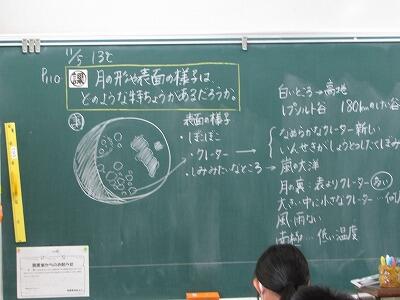 11/5 13℃
P110 課 月の形や表面の様子は、
どのような特ちょうがあるだろうか。
表面の様子
・ぼこぼこ
・クレーター →
・しみみたいなところ → 嵐の大洋
白いところ → 高地
180kmの
なめらかなクレーター 新しい
いんせきがしょうとつしてくぼみ
月の裏:表よりクレーター 多い
大きい中に小さなクレーター…
風、雨ない
南極…低い温度